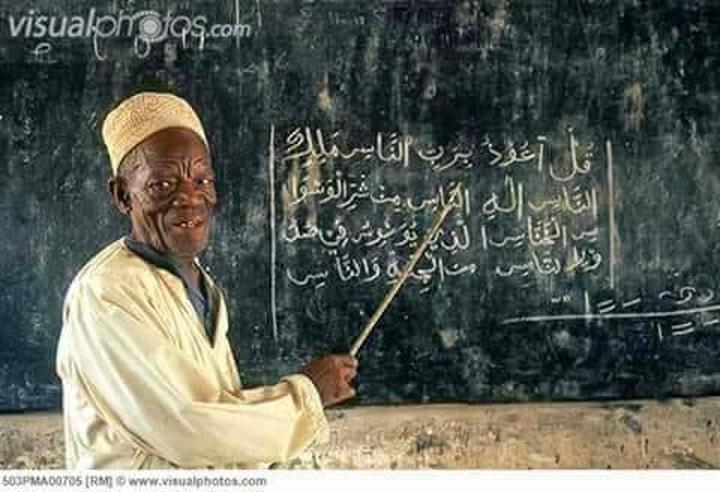 visualphotos.com
قل أعوذ برب الناس ملك
الناس إله الناس من شر الوسوا
س الخناس الذي يوسوس في صد
ور الناس من الجنة والناس
503PMA00705 [RM] © www.visualphotos.com